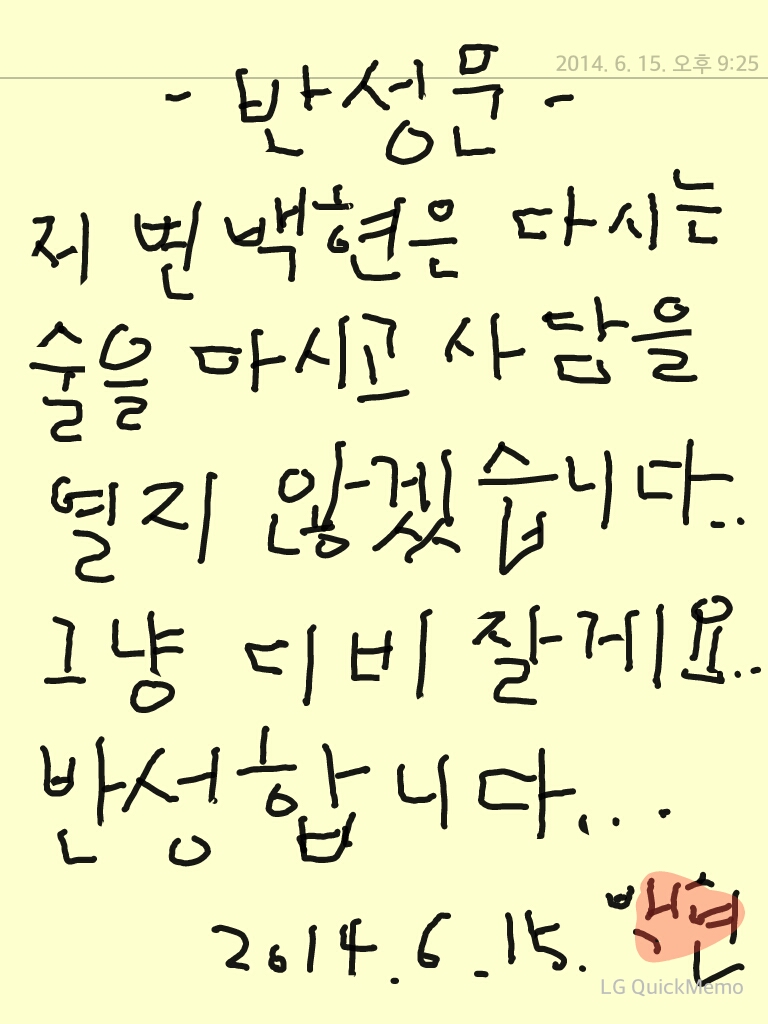 2014. 6. 15. 오후 9:25
- 반성문 -
저 변백현은 다시는
술을 마시고 사담을
열지 않겠습니다..
그냥 디비 잘게요..
반성합니다...
2014. 6. 15. 백현
LG QuickMemo